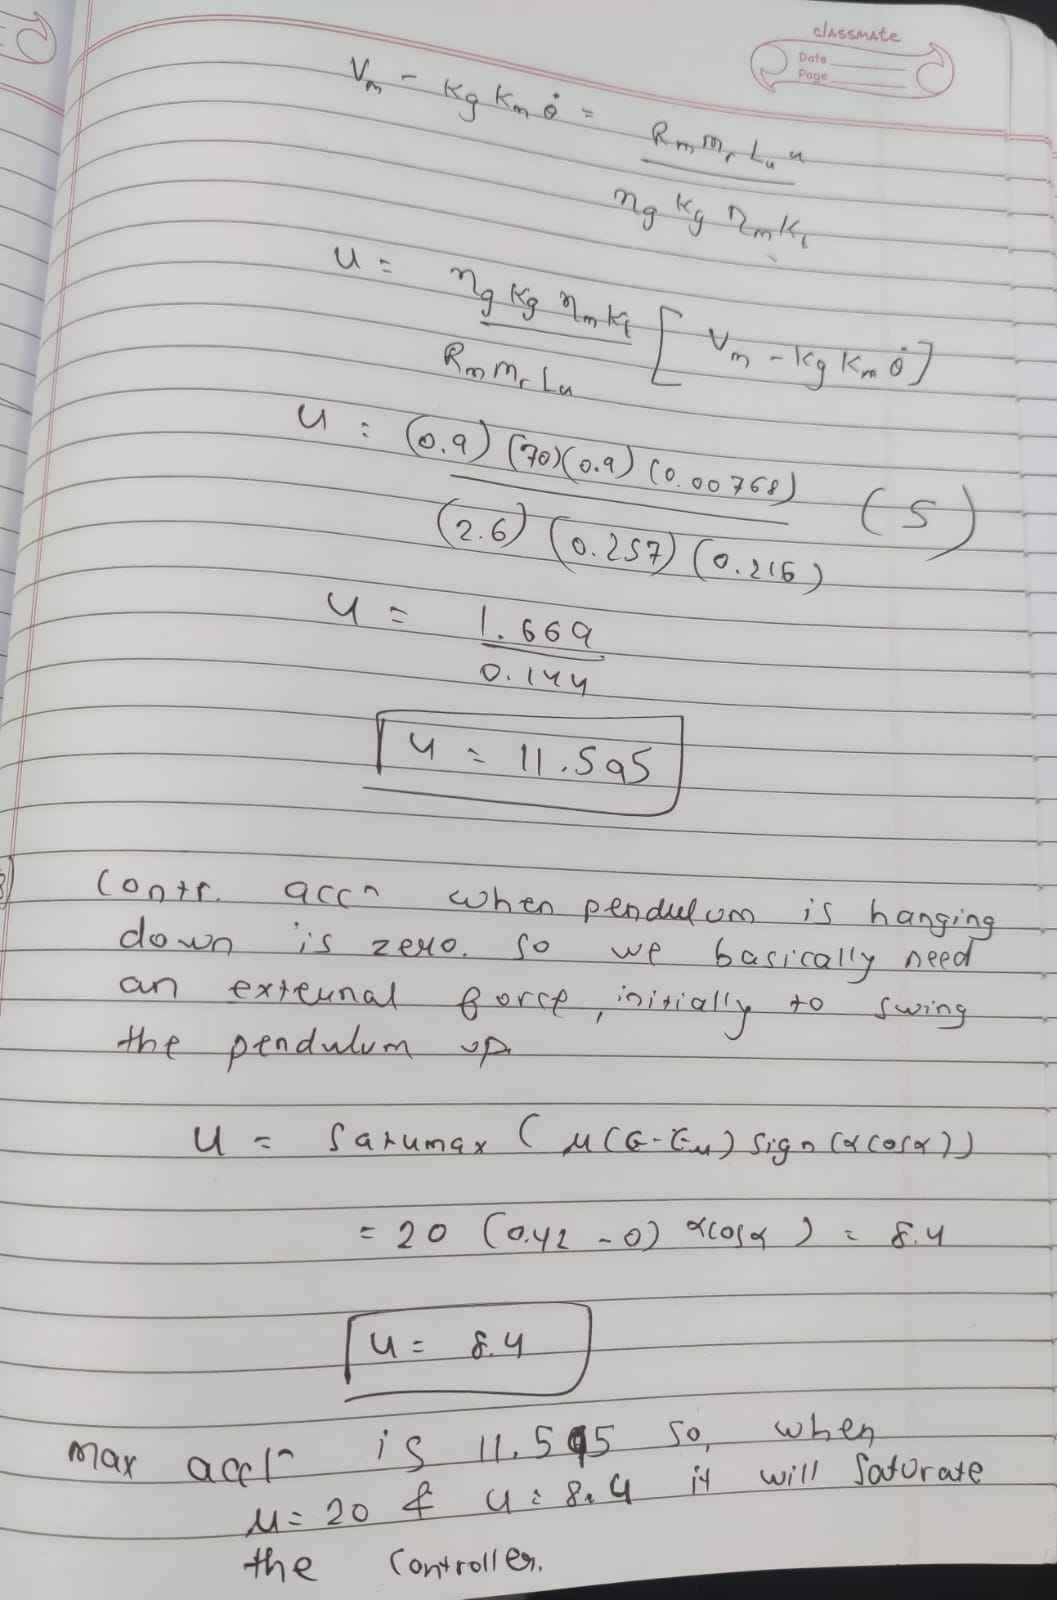 classmate
Date
Page
Vm - Kg Km θ̇ = Rm mr La u / ηg Kg ηm Kt
u = ηg Kg ηm Kt / Rm mr La [ Vm - Kg Km θ̇ ]
u = (0.9) (70) (0.9) (0.00768) / (2.6) (0.257) (0.216) (5)
u = 1.669 / 0.144
u = 11.595
Contr. accn when pendulum is hanging
down is zero. So we basically need
an external force, initially to swing
the pendulum up
u = Satumax ( μ(E-Eu) sign (αcosα))
= 20 (0.42 - 0) αcosα ) = 8.4
u = 8.4
Max accln is 11.595 so, when
μ = 20 & u = 8.4 it will saturate
the controller.